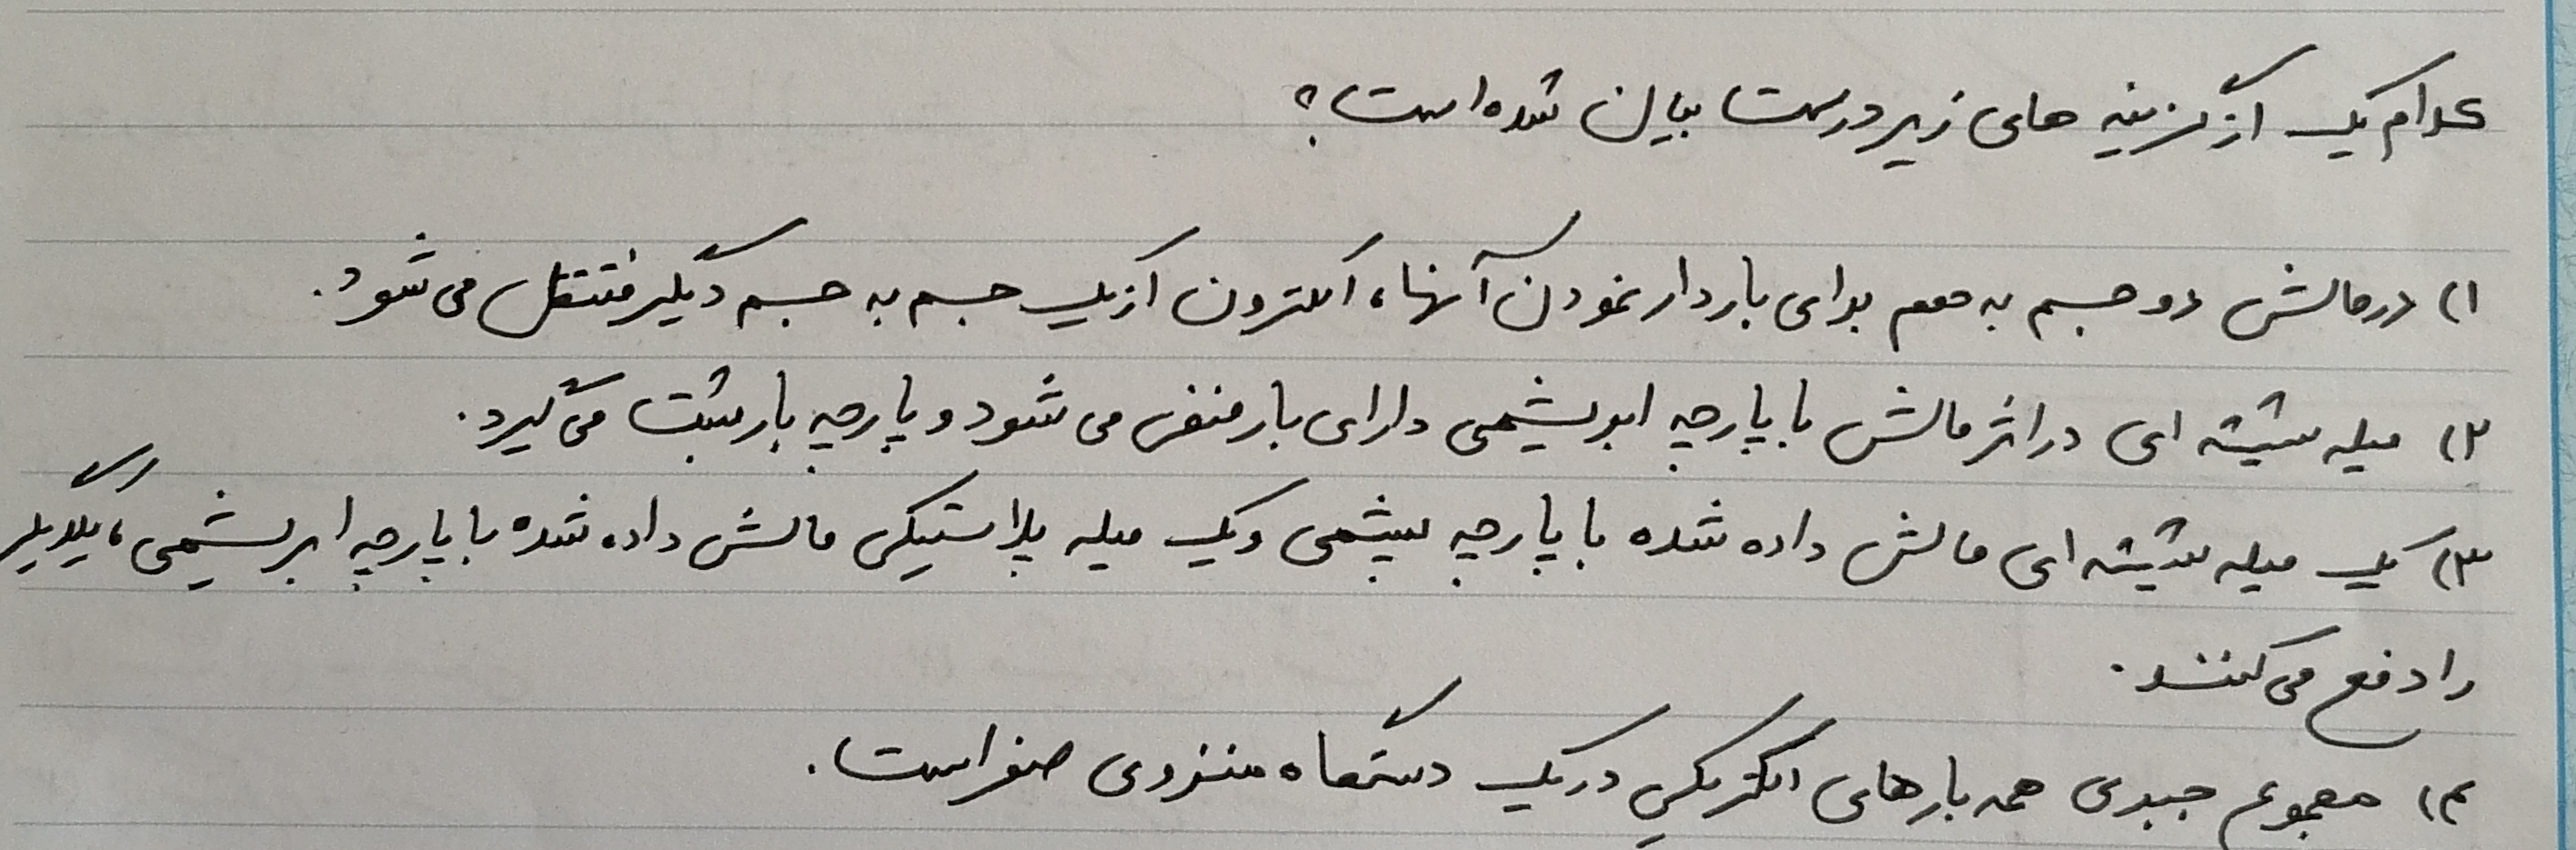 کدام یک از گزینه های زیر درست بیان شده است؟
۱) در مالش دو جسم به هم برای باردار نمودن آنها، الکترون از یک جسم به جسم دیگر منتقل می شود.
۲) میله شیشه ای در اثر مالش با پارچه ابریشمی دارای بار منفی می شود و پارچه بار مثبت می گیرد.
۳) یک میله شیشه ای مالش داده شده با پارچه پشمی و یک میله پلاستیکی مالش داده شده با پارچه ابریشمی، یکدیگر
را دفع می کنند.
۴) مجموع جبری همه بارهای الکتریکی در یک دستگاه منزوی صفر است.